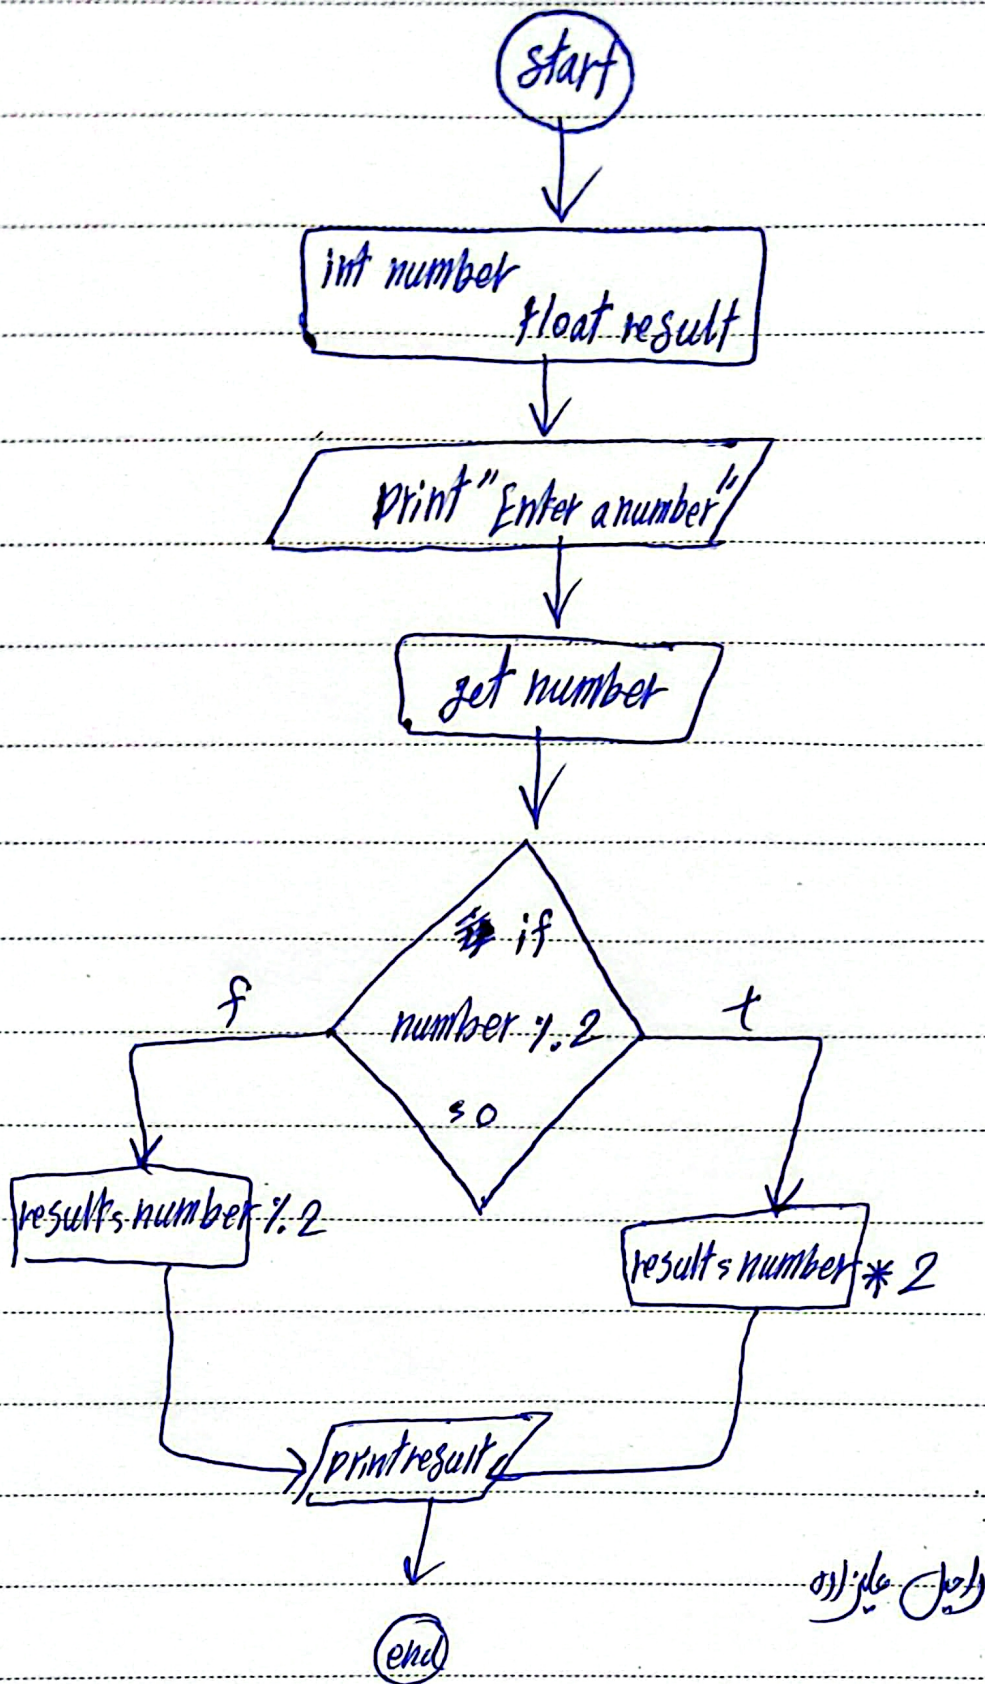 start
int number
float result
print "Enter a number"
get number
if
number % 2
= 0
f
t
result = number % 2
result = number * 2
print result
end